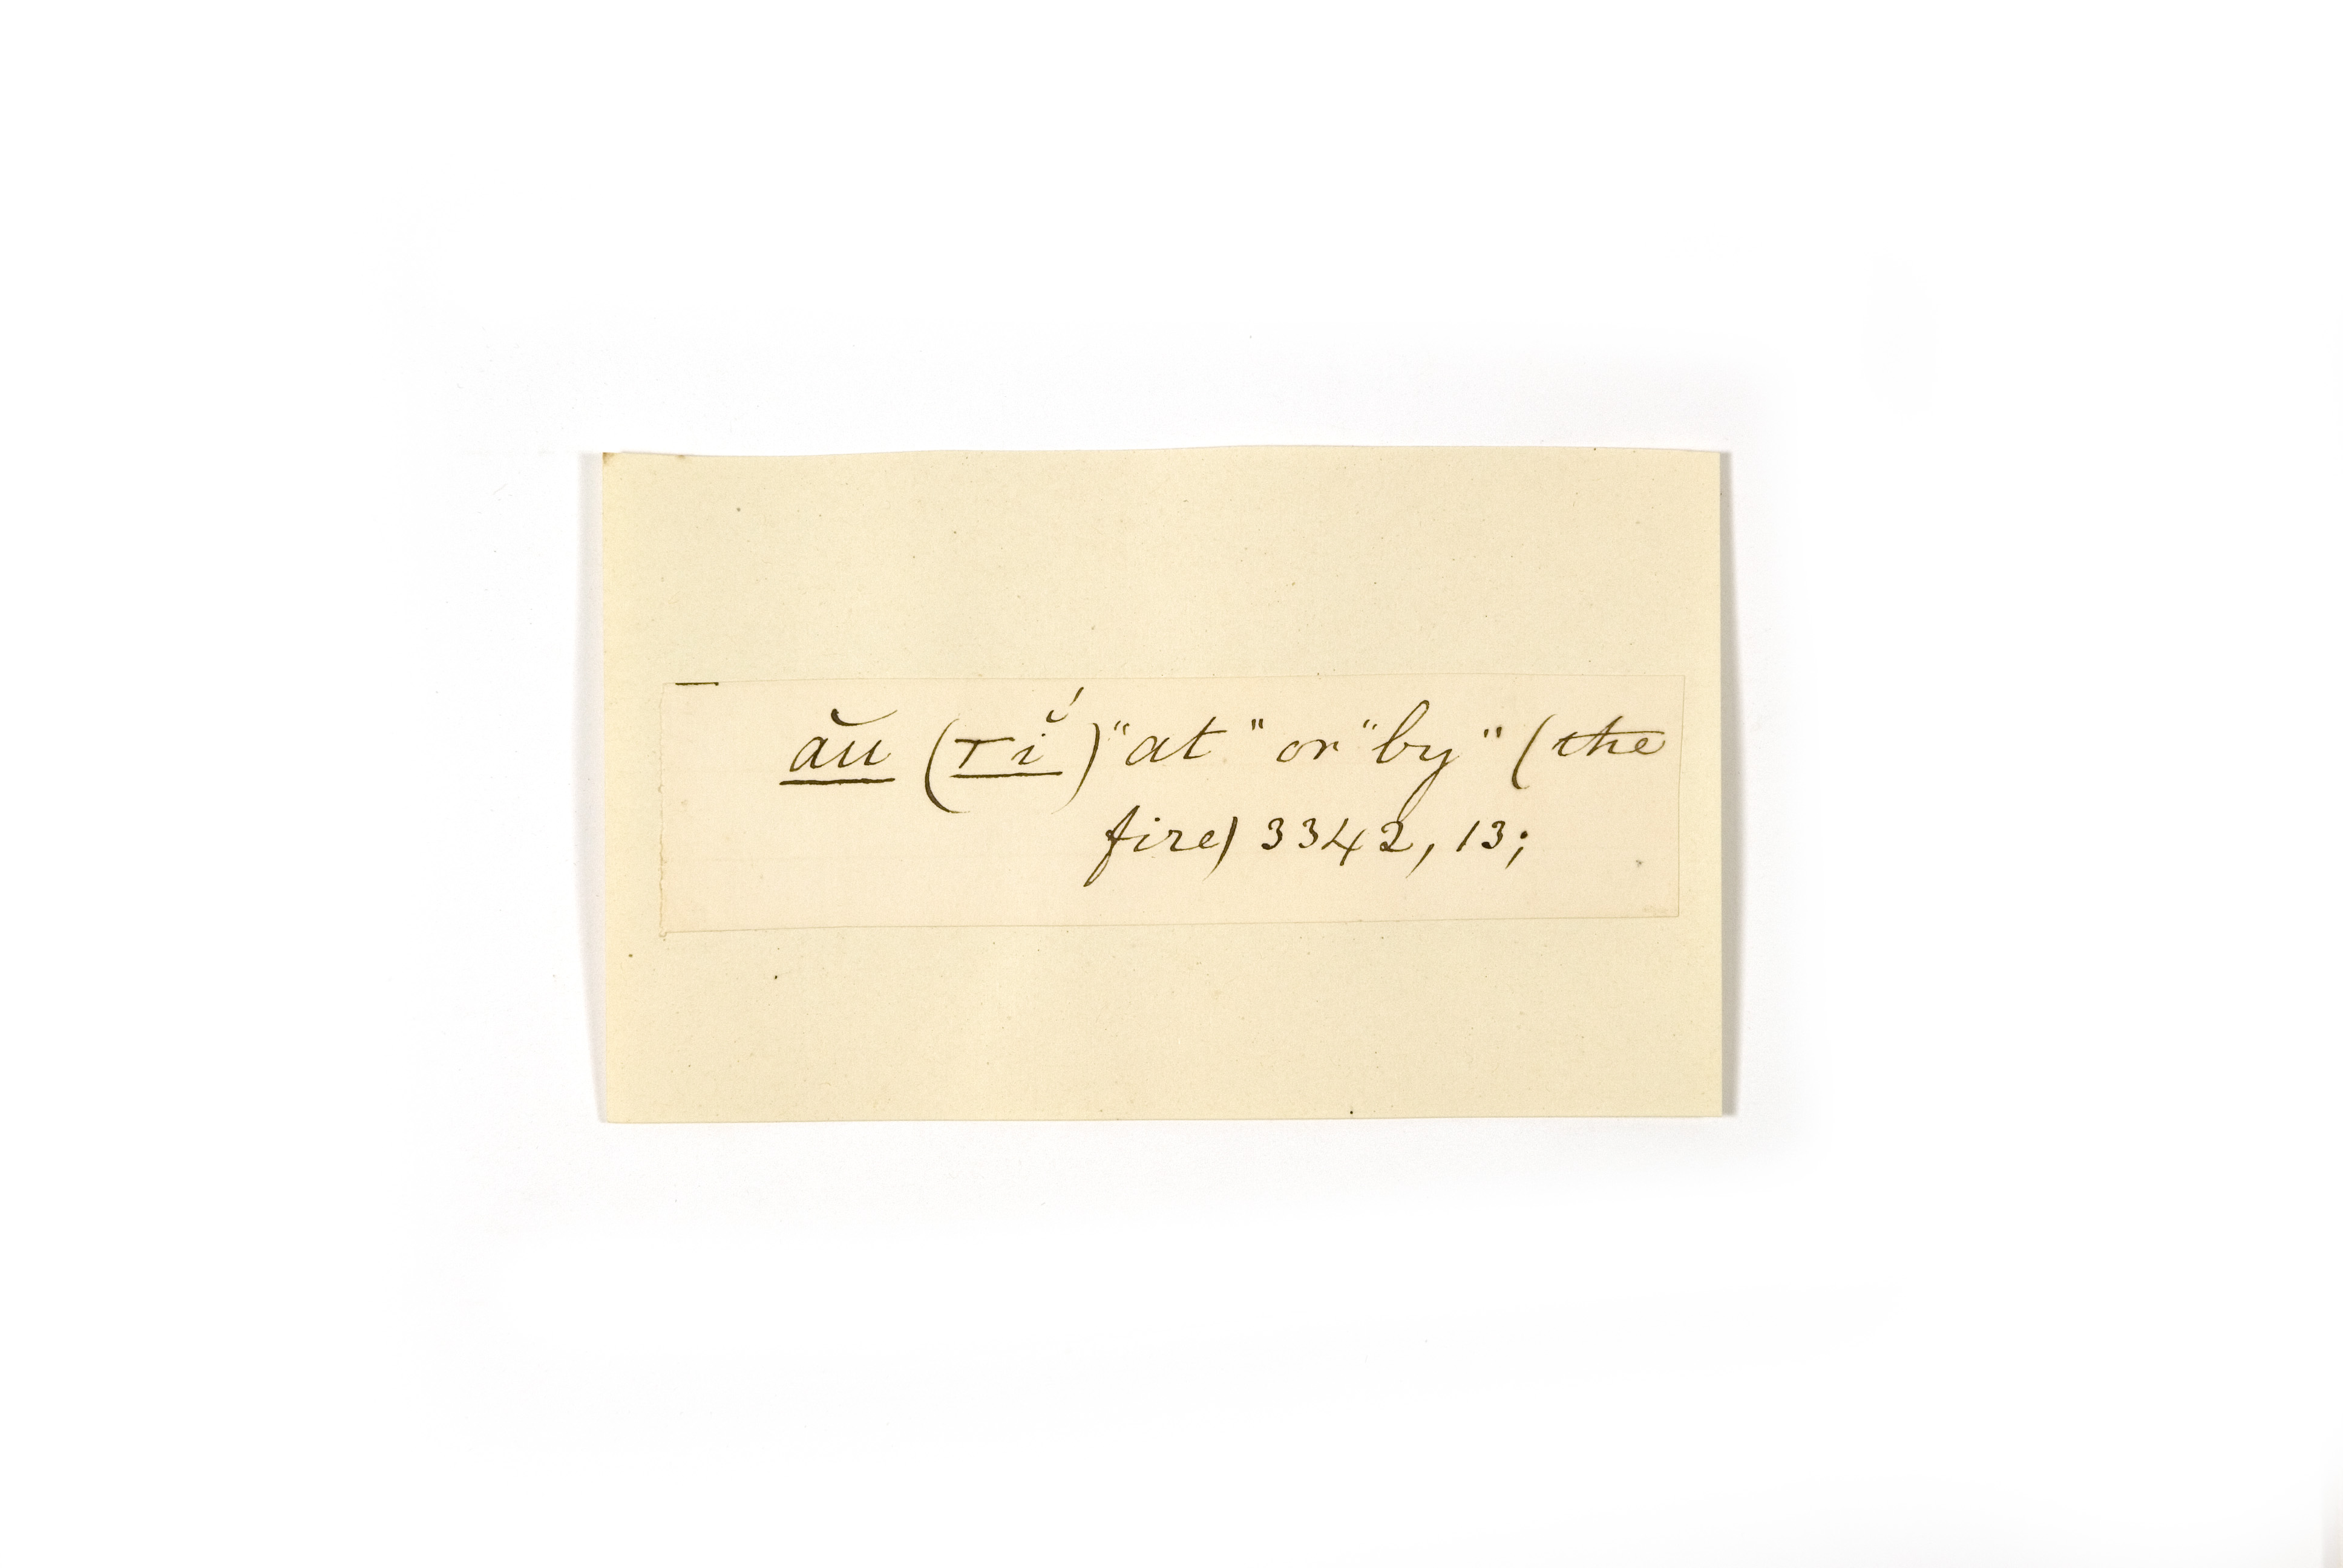 ău (т ĭ́) "at" or "by" (the
fire) 3342, 13;